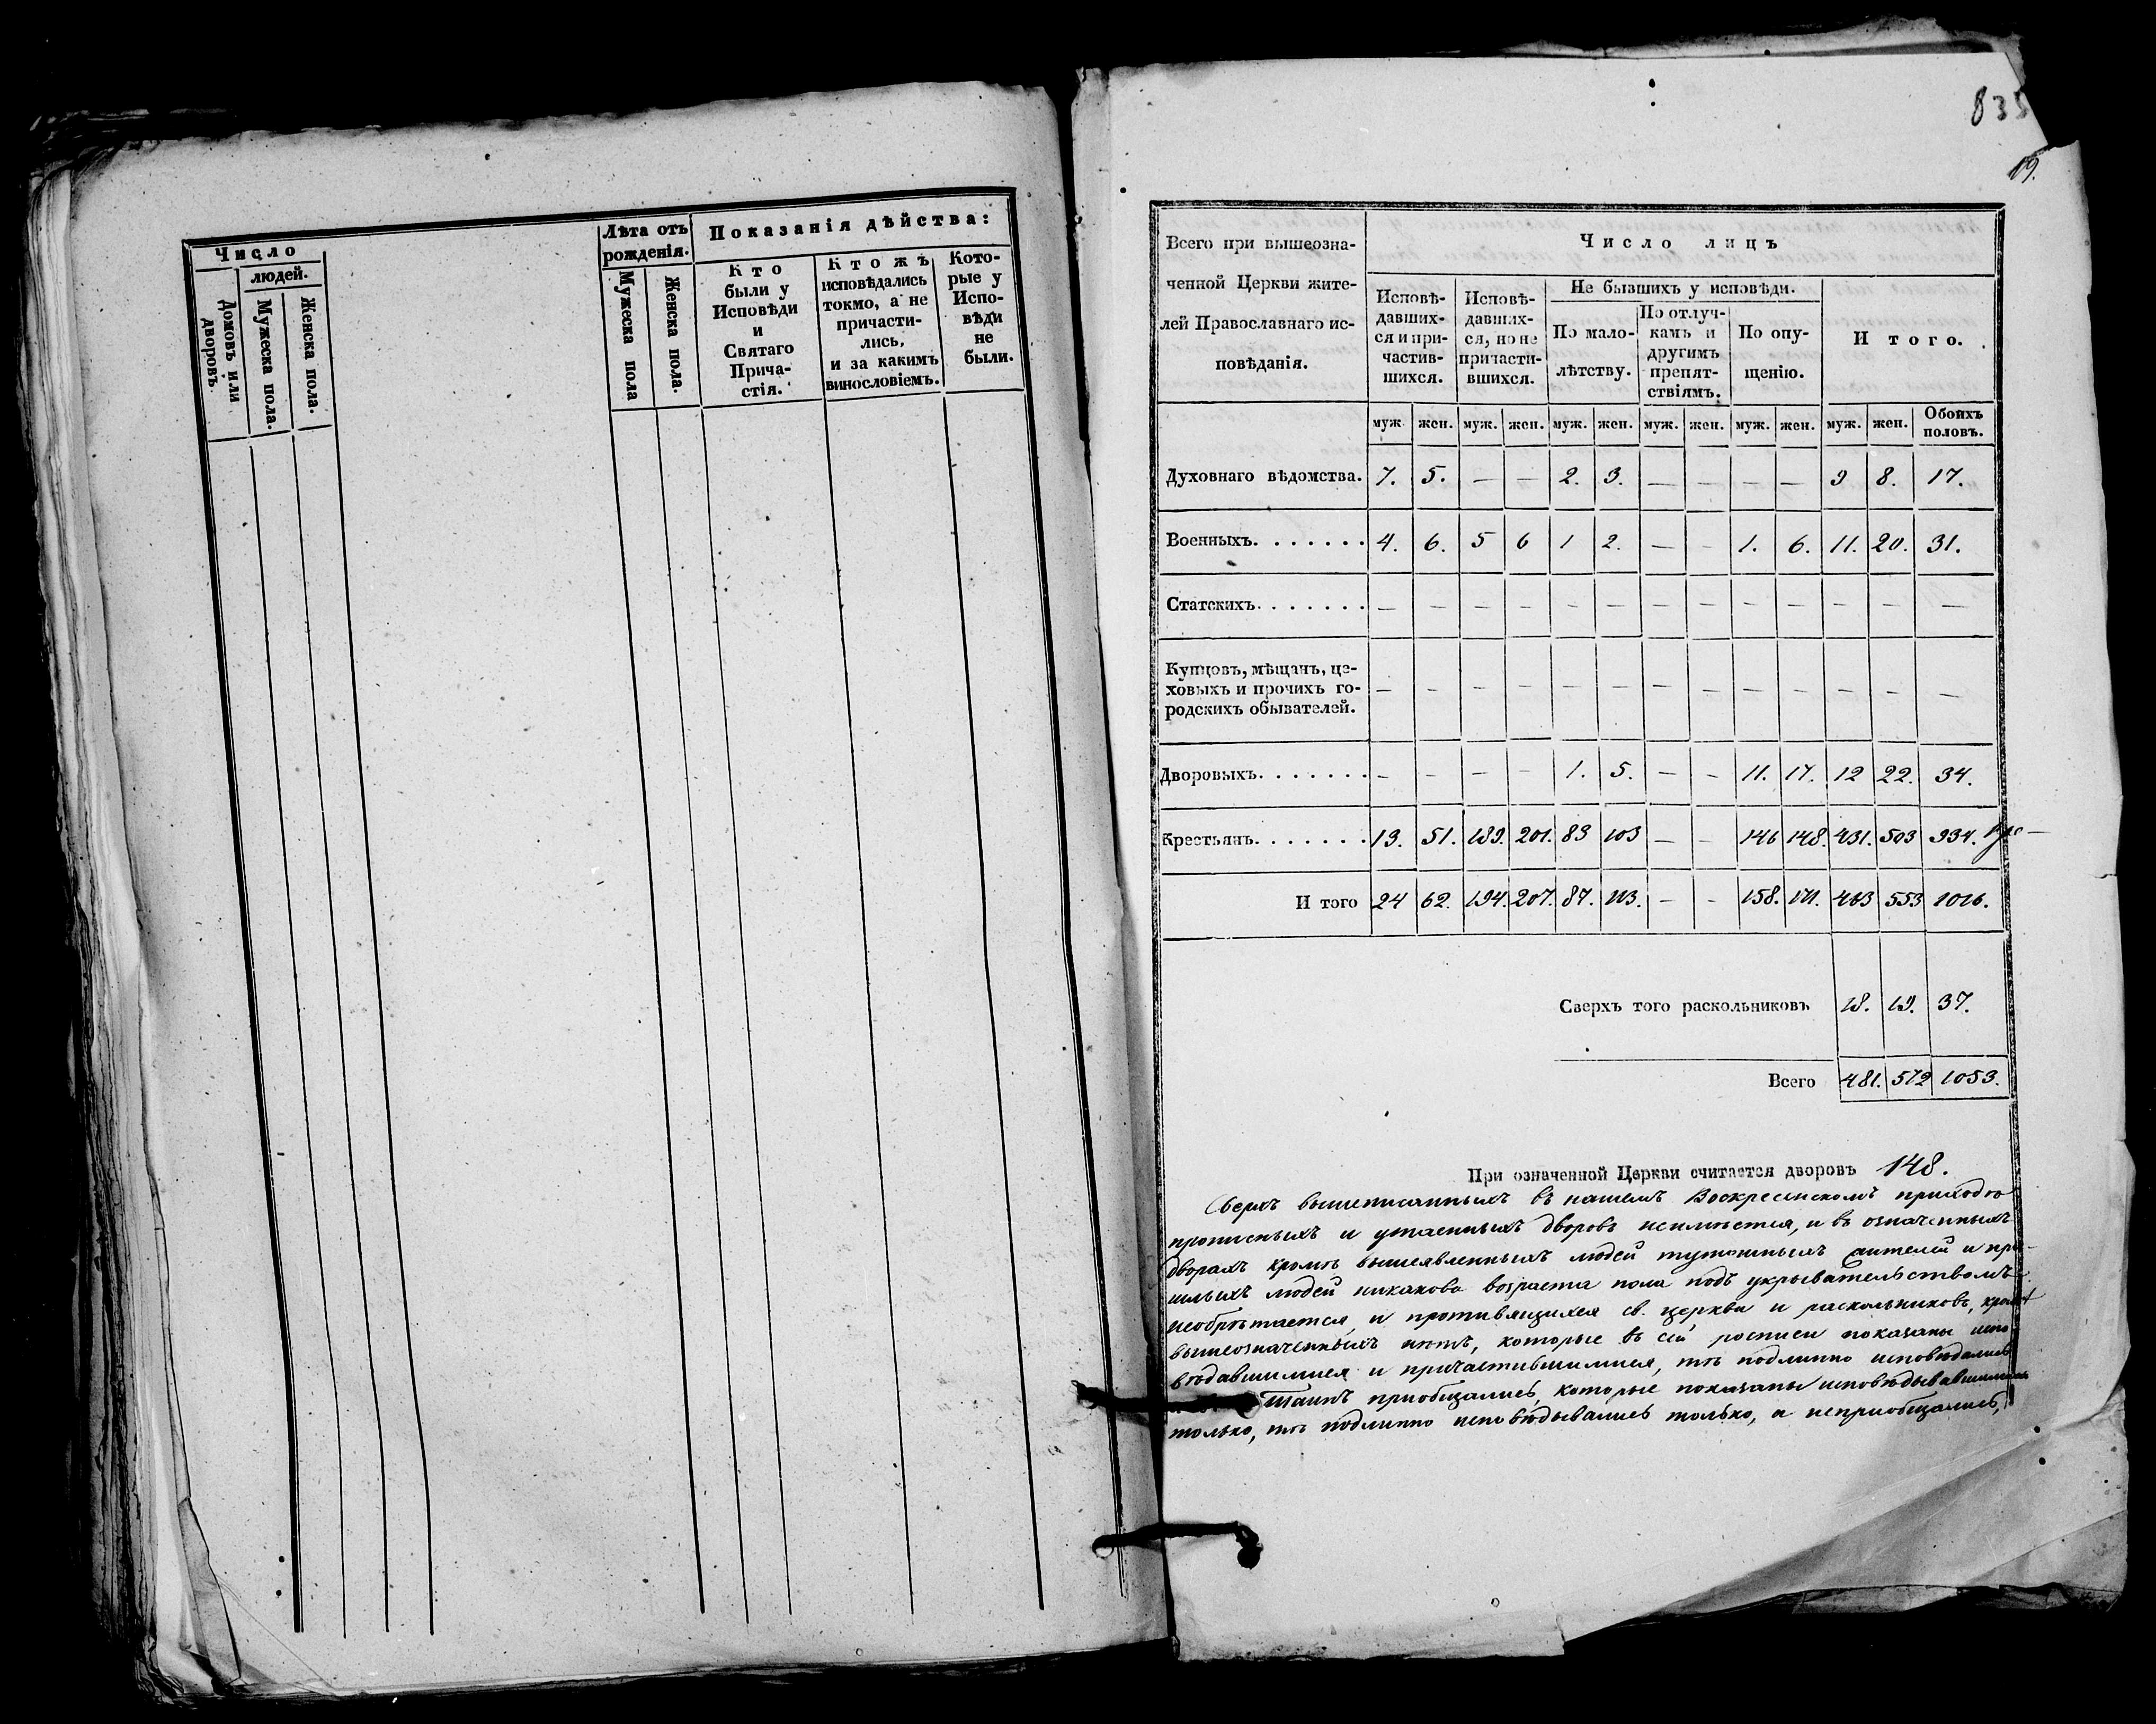 Число
людей.
Домовъ или дворовъ.
Мужеска пола.
Женска пола.
Лѣта отъ рожденія.
Мужеска пола
Женска пола.
Показанія дѣйства:
Кто
были у
Исповѣди
и
Святаго
Прича-
стія.
Ктожъ
исповѣдались
токмо, а не
причасти-
лись,
и за какимъ
винословіемъ.
Кото-
рые у
Испо-
вѣди
не
были.
835
19.
Всего при вышеозна-
ченной Церкви жите-
лей Православнаго ис-
повѣданія.
Число лицъ
Исповѣ-
давших-
ся и при-
частив-
шихся.
Исповѣ-
давших-
ся, но не
причасти-
вшихся.
Не бывшихъ у исповѣди.
По мало-
лѣтству.
По отлуч-
камъ и
другимъ
препят-
ствіямъ.
По опу-
щенію.
Итого.
муж. жен. муж. жен. муж. жен. муж. жен. муж. жен. муж. жен. Обоихъ половъ.
Духовнаго вѣдомства. 7. 5. — — 2. 3. — — — — 9 8. 17.
Военныхъ. . . . . . . 4. 6. 5 6 1 2. — — 1. 6. 11. 20. 31.
Статскихъ. . . . . . . — — — — — — — — — — — — —
Купцовъ, мѣщанъ, це-
ховыхъ и прочихъ го- — — — — — — — — — — — — —
родскихъ обывателей.
Дворовыхъ. . . . . . . — — — — 1. 5. — — 11. 17. 12 22. 34.
Крестьянъ. . . . . . . 13. 51. 189. 201. 83 103 — — 146 148. 431. 503 934.
И того 24 62. 194. 207. 87. 113. — — 158. 171. 463 553 1016.
Сверхъ того раскольниковъ 18. 19. 37.
Всего 481. 572 1053.
При означенной Церкви считается дворовъ 148.
Сверхъ вышеписанныхъ въ нашемъ Воскресенскомъ приходѣ
прописныхъ и утаенныхъ дворовъ неимѣется, и въ означенныхъ
дворахъ кромѣ вышеявленныхъ людей тутошныхъ жителей и при-
шлыхъ людей никакова возраста пола подъ укрывательствомъ
необрѣтается, и противящихся св. церкви и раскольниковъ, кромѣ
вышеозначенныхъ нѣтъ, которые въ сей росписи показаны испо-
вѣдавшимися и причастившимися, тѣ подлинно исповѣдались
Таинъ приобщались, которые показаны исповѣдывавшимися
только, тѣ подлинно исповѣдывались только, а неприобщались,